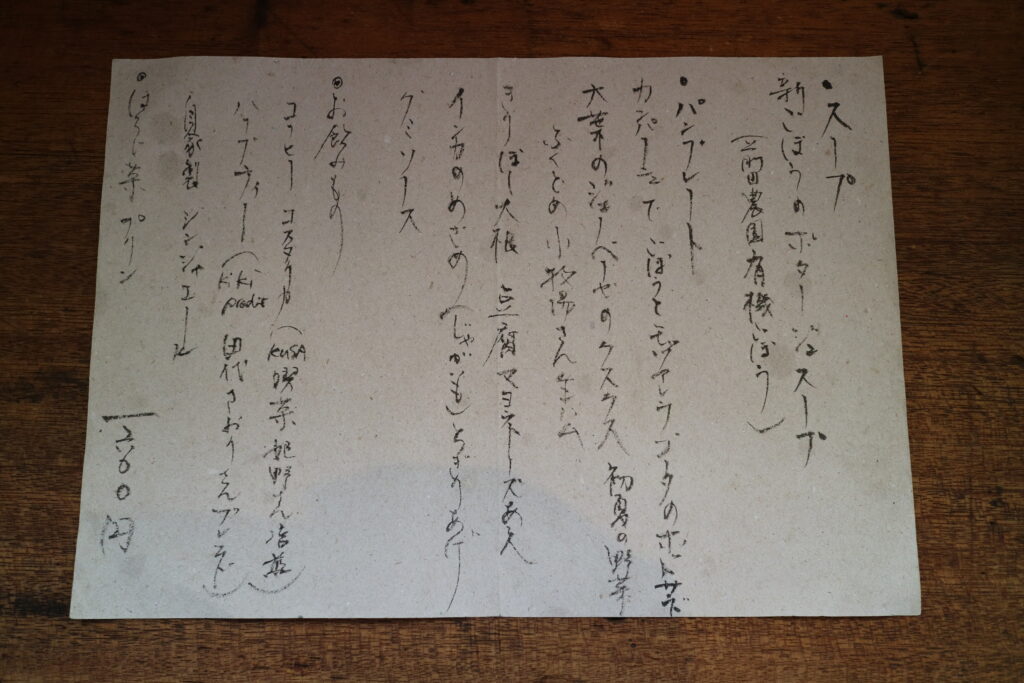 ・スープ
新ごぼうのポタージュスープ
農園有機ごぼう）
・パンプレート
カンパーニュで ごぼうとモッツァレラ
大葉のジェノベーゼのクスクス 初夏の野菜
ふくどめ小牧場さん
きりぼし大根 豆腐マヨネーズあえ
インカのめざめ（じゃがいも）
グミソース
◎お飲みもの
コーヒー コスタリカ（KUSA喫茶 姫野さん焙煎）
ハーブティー（kiki 田代さおりさんブレンド）
自家製 ジンジャエール
◎ほうじ茶プリン
円